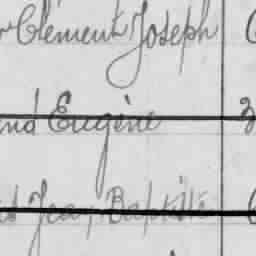 Clément Joseph
nd Eugène 3
Jean Baptiste